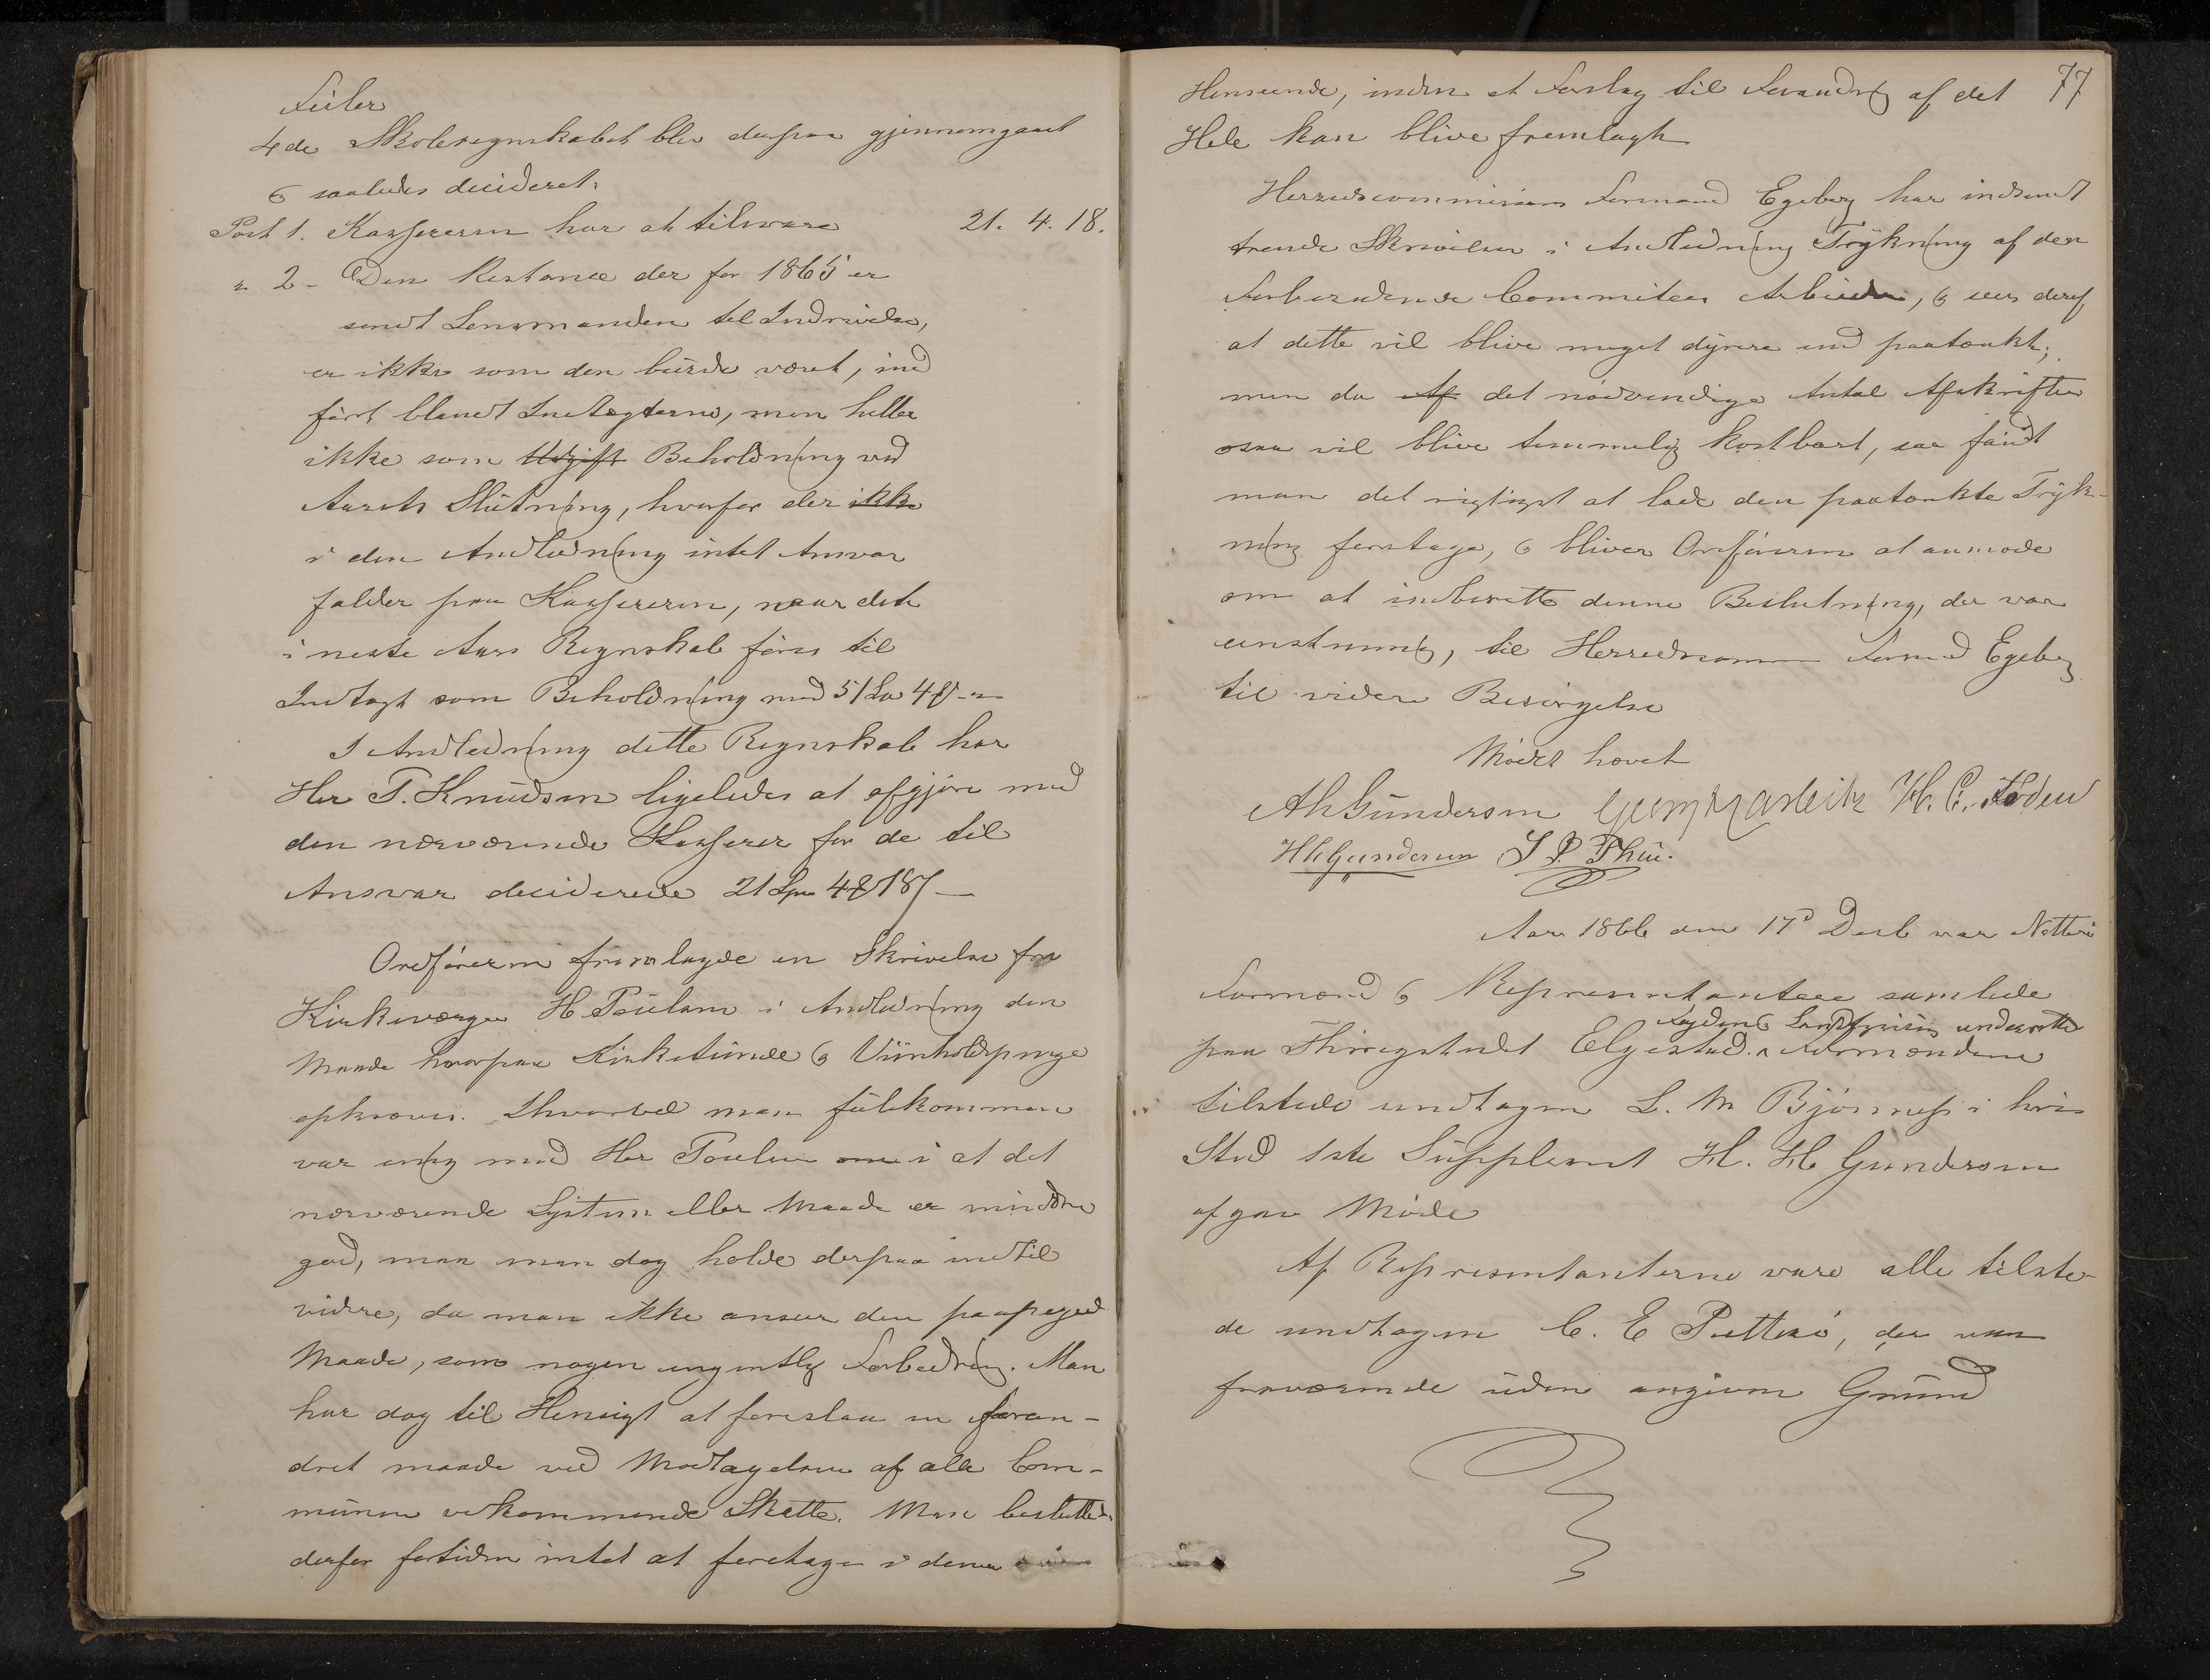 Feiler
4de Skoleregnskabet blev derpaa gjennemgaaet
& saaledes decideret:
Post 1. Kassereren har at tilsvare 21. 4. 18.
" 2 - Den Restance der for 1865 er
sendt Lensmanden til Inddrivelse,
er ikke som den burde været, ind
ført blandt Indtægterne, men heller
ikke som Udgift Beholdning ved
Aarets Slutning, hvorfor der ikke
i den Anledning intet Ansvar
falder paa Kassereren, naar dete
i neste Aars Regnskab føres til
Indtægt som Beholdning med 51
I Andledning dette Regnskab har
Her T. Knudsen ligeledes at afgjøre med
den nærværende Kasserer for de til
Ansvar deciderede 21
Ordføreren fremlagde en Skrivelse fra
Kirkeværge H Poulsen i Andledning den
Maade hvorpaa Kirketiende &
opkræves. Ihvorvel man fulkommen
var enig med Her Poulsen om i at det
nærværende System eller Maade er mindre
god, maa man dog holde derpaa indtil
videre, da man ikke anseer den paapegede
Maade, som nogen egentlig Forbedring. Man
har dog til Hensigt at foreslaa en foran-
dret maade ved Modtagelsen af alle Com-
munen vedkommende Skatte. Man besluttede
derfor fortiden intet at foretage i denne
77
Henseende, inden et Forslag til Forandrg af det
Hele kan blive fremlagt
Herredscommisions Formand Egeberg har indsendt
trende Skrivelser i Andledning Trykning af den
Forberedende Commitees Arbeide, & sees deraf
at dette vil blive meget dyrere end paatænkt;
men da Af det nødvendige Antal Afskrifter
osaa vil blive temmelig kostbart, saa fandt
man det rigtigst at lade den paatænkte Tryk-
ning foretage, & bliver Ordføreren at anmode
om at indberette denne Beslutning, der var
enstemmig, til Herredscomm Formd Egeberg
til videre Besørgelse
Mødet hævet
Ah Gundersen H. C. Foden
H H Gundersen S P. Thue.
Aar 1866 den 17d Decb var Nøtterø
Formænd & Representantere samlede
paa Thingstedet Elgestad. ^ Formændene
Fogden & underrettet
tilstede undtagen L. M Bjønness i hvis
Sted 1ste Suppleant H. H Gundersen
afgav Møde
Af Representanterne vare alle tilste-
de undtagen C. E Petterø, der var
fraværende uden angiven Grund